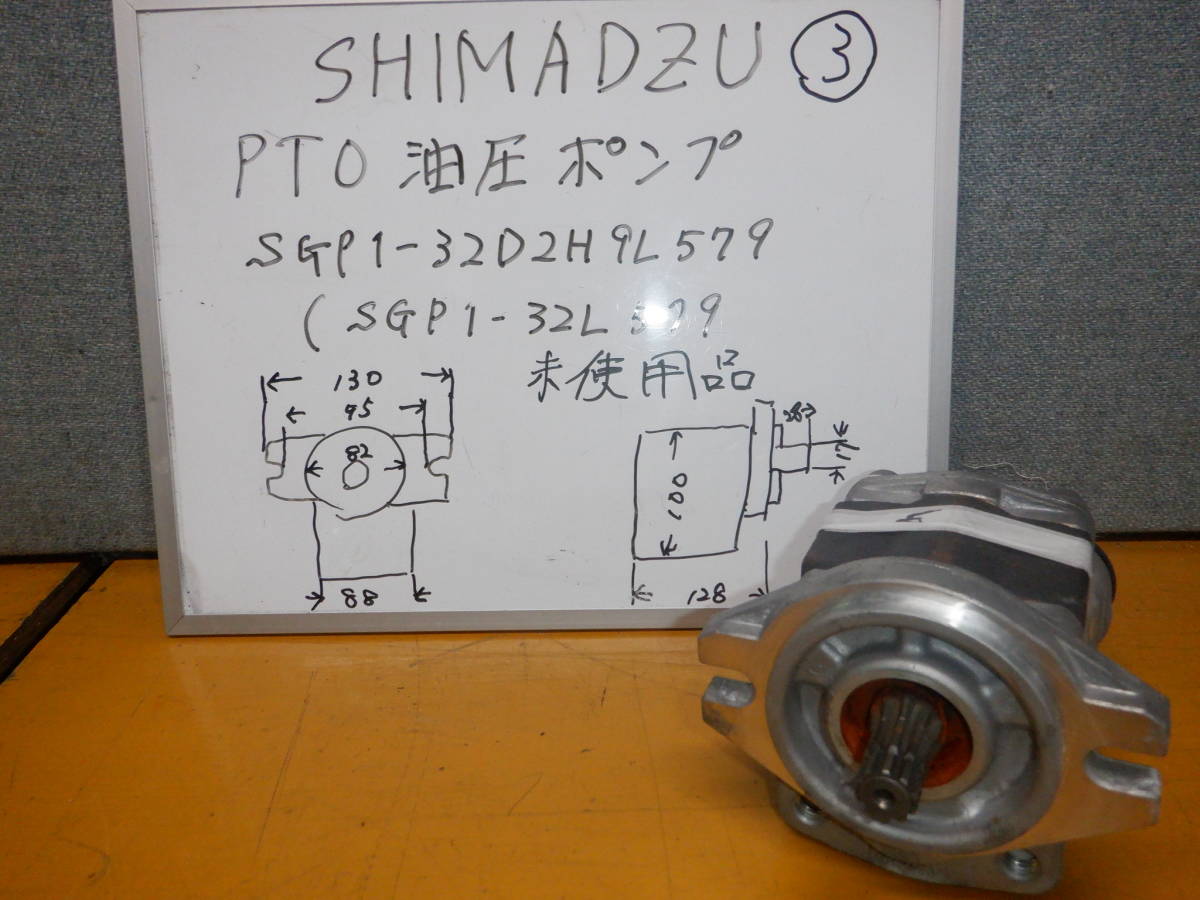 SHIMADZU ③
PTO 油圧ポンプ
SGP1-32D2H9L579
(SGP1-32L579
未使用品
130
95
82
88
28
17
100
128